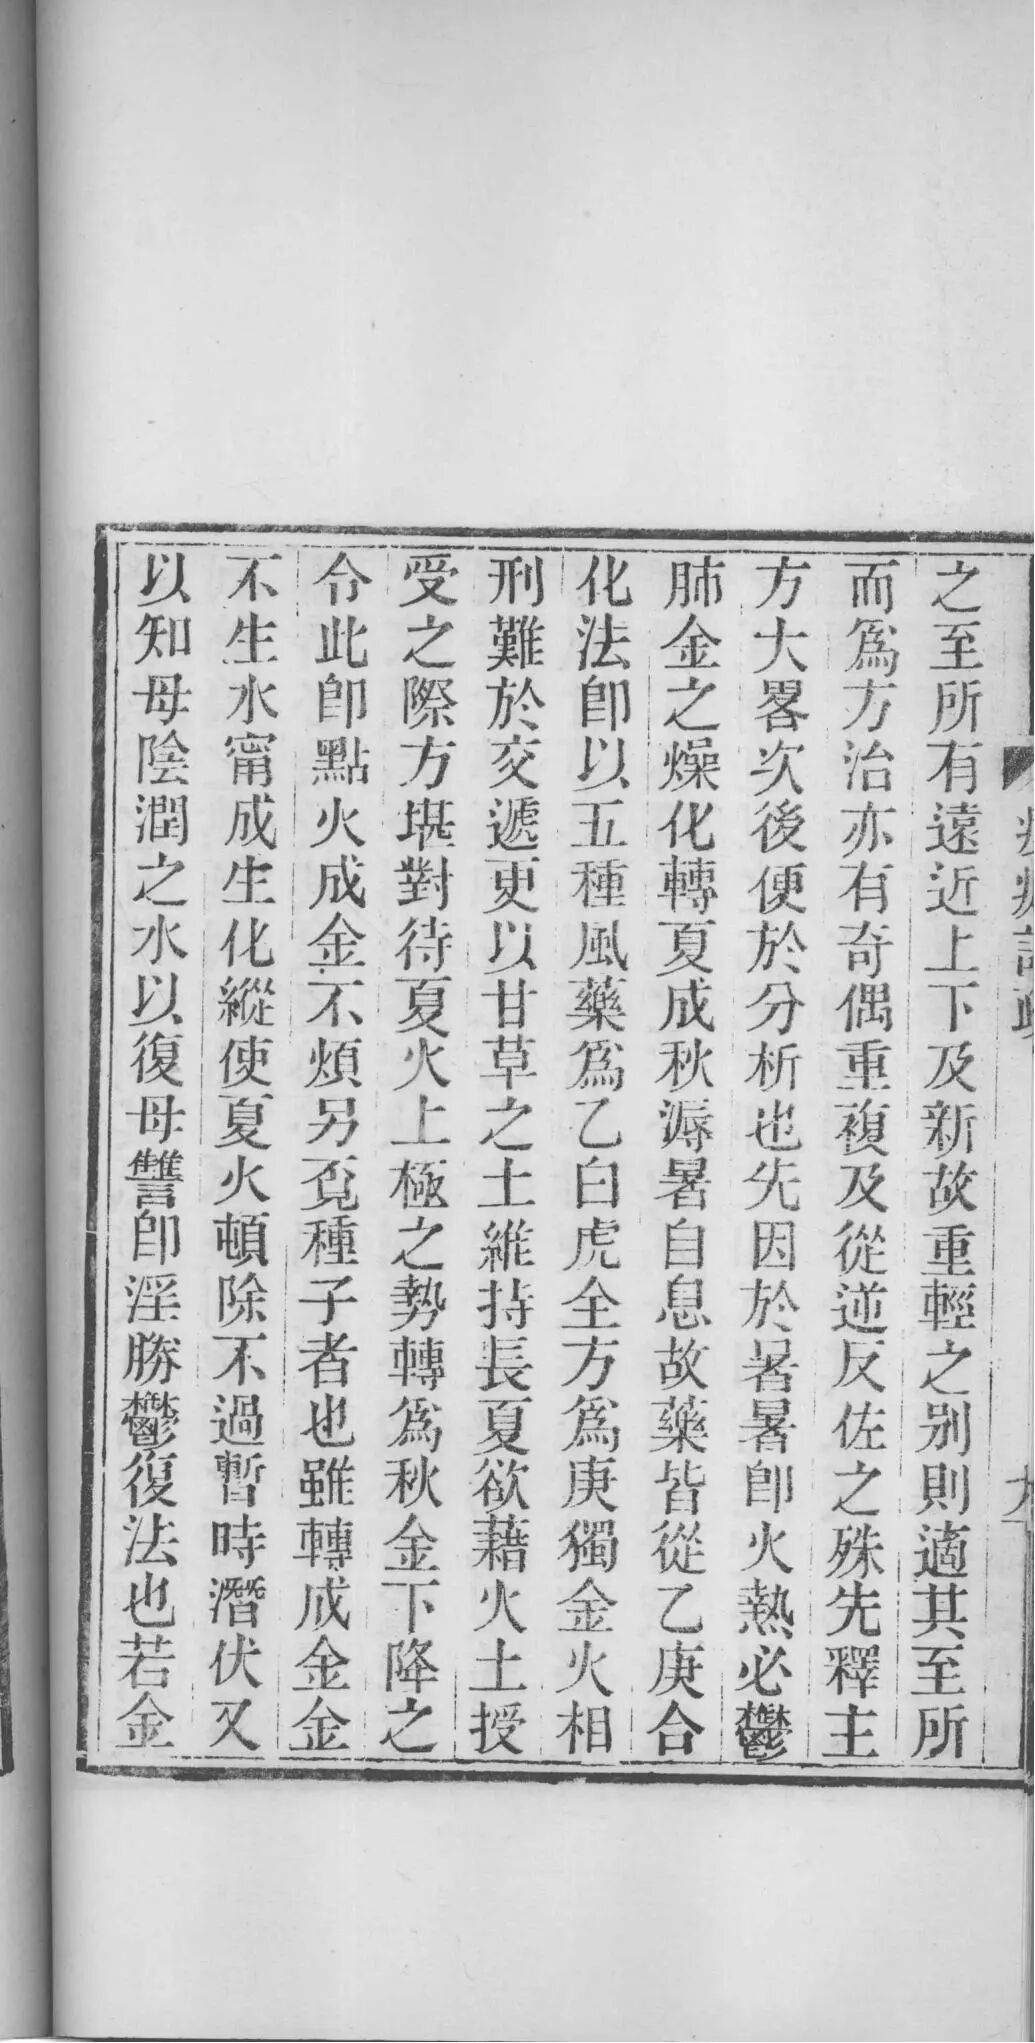 之至所有遠近上下及新故重輕之别則適其至所
而爲方治亦有奇偶重複及從逆反佐之殊先釋主
方大畧次後便於分析也先因於暑暑卽火熱必鬱
肺金之燥化轉夏成秋溽暑自息故藥皆從乙庚合
化法卽以五種風藥爲乙白虎全方爲庚獨金火相
刑難於交遞更以甘草之土維持長夏欲藉火土授
受之際方堪對待夏火上極之勢轉爲秋金下降之
令此卽點火成金不煩另覓種子者也雖轉成金金
不生水甯成生化縱使夏火頓除不過暫時潛伏又
以知母陰潤之水以復母讐卽淫勝鬱復法也若金